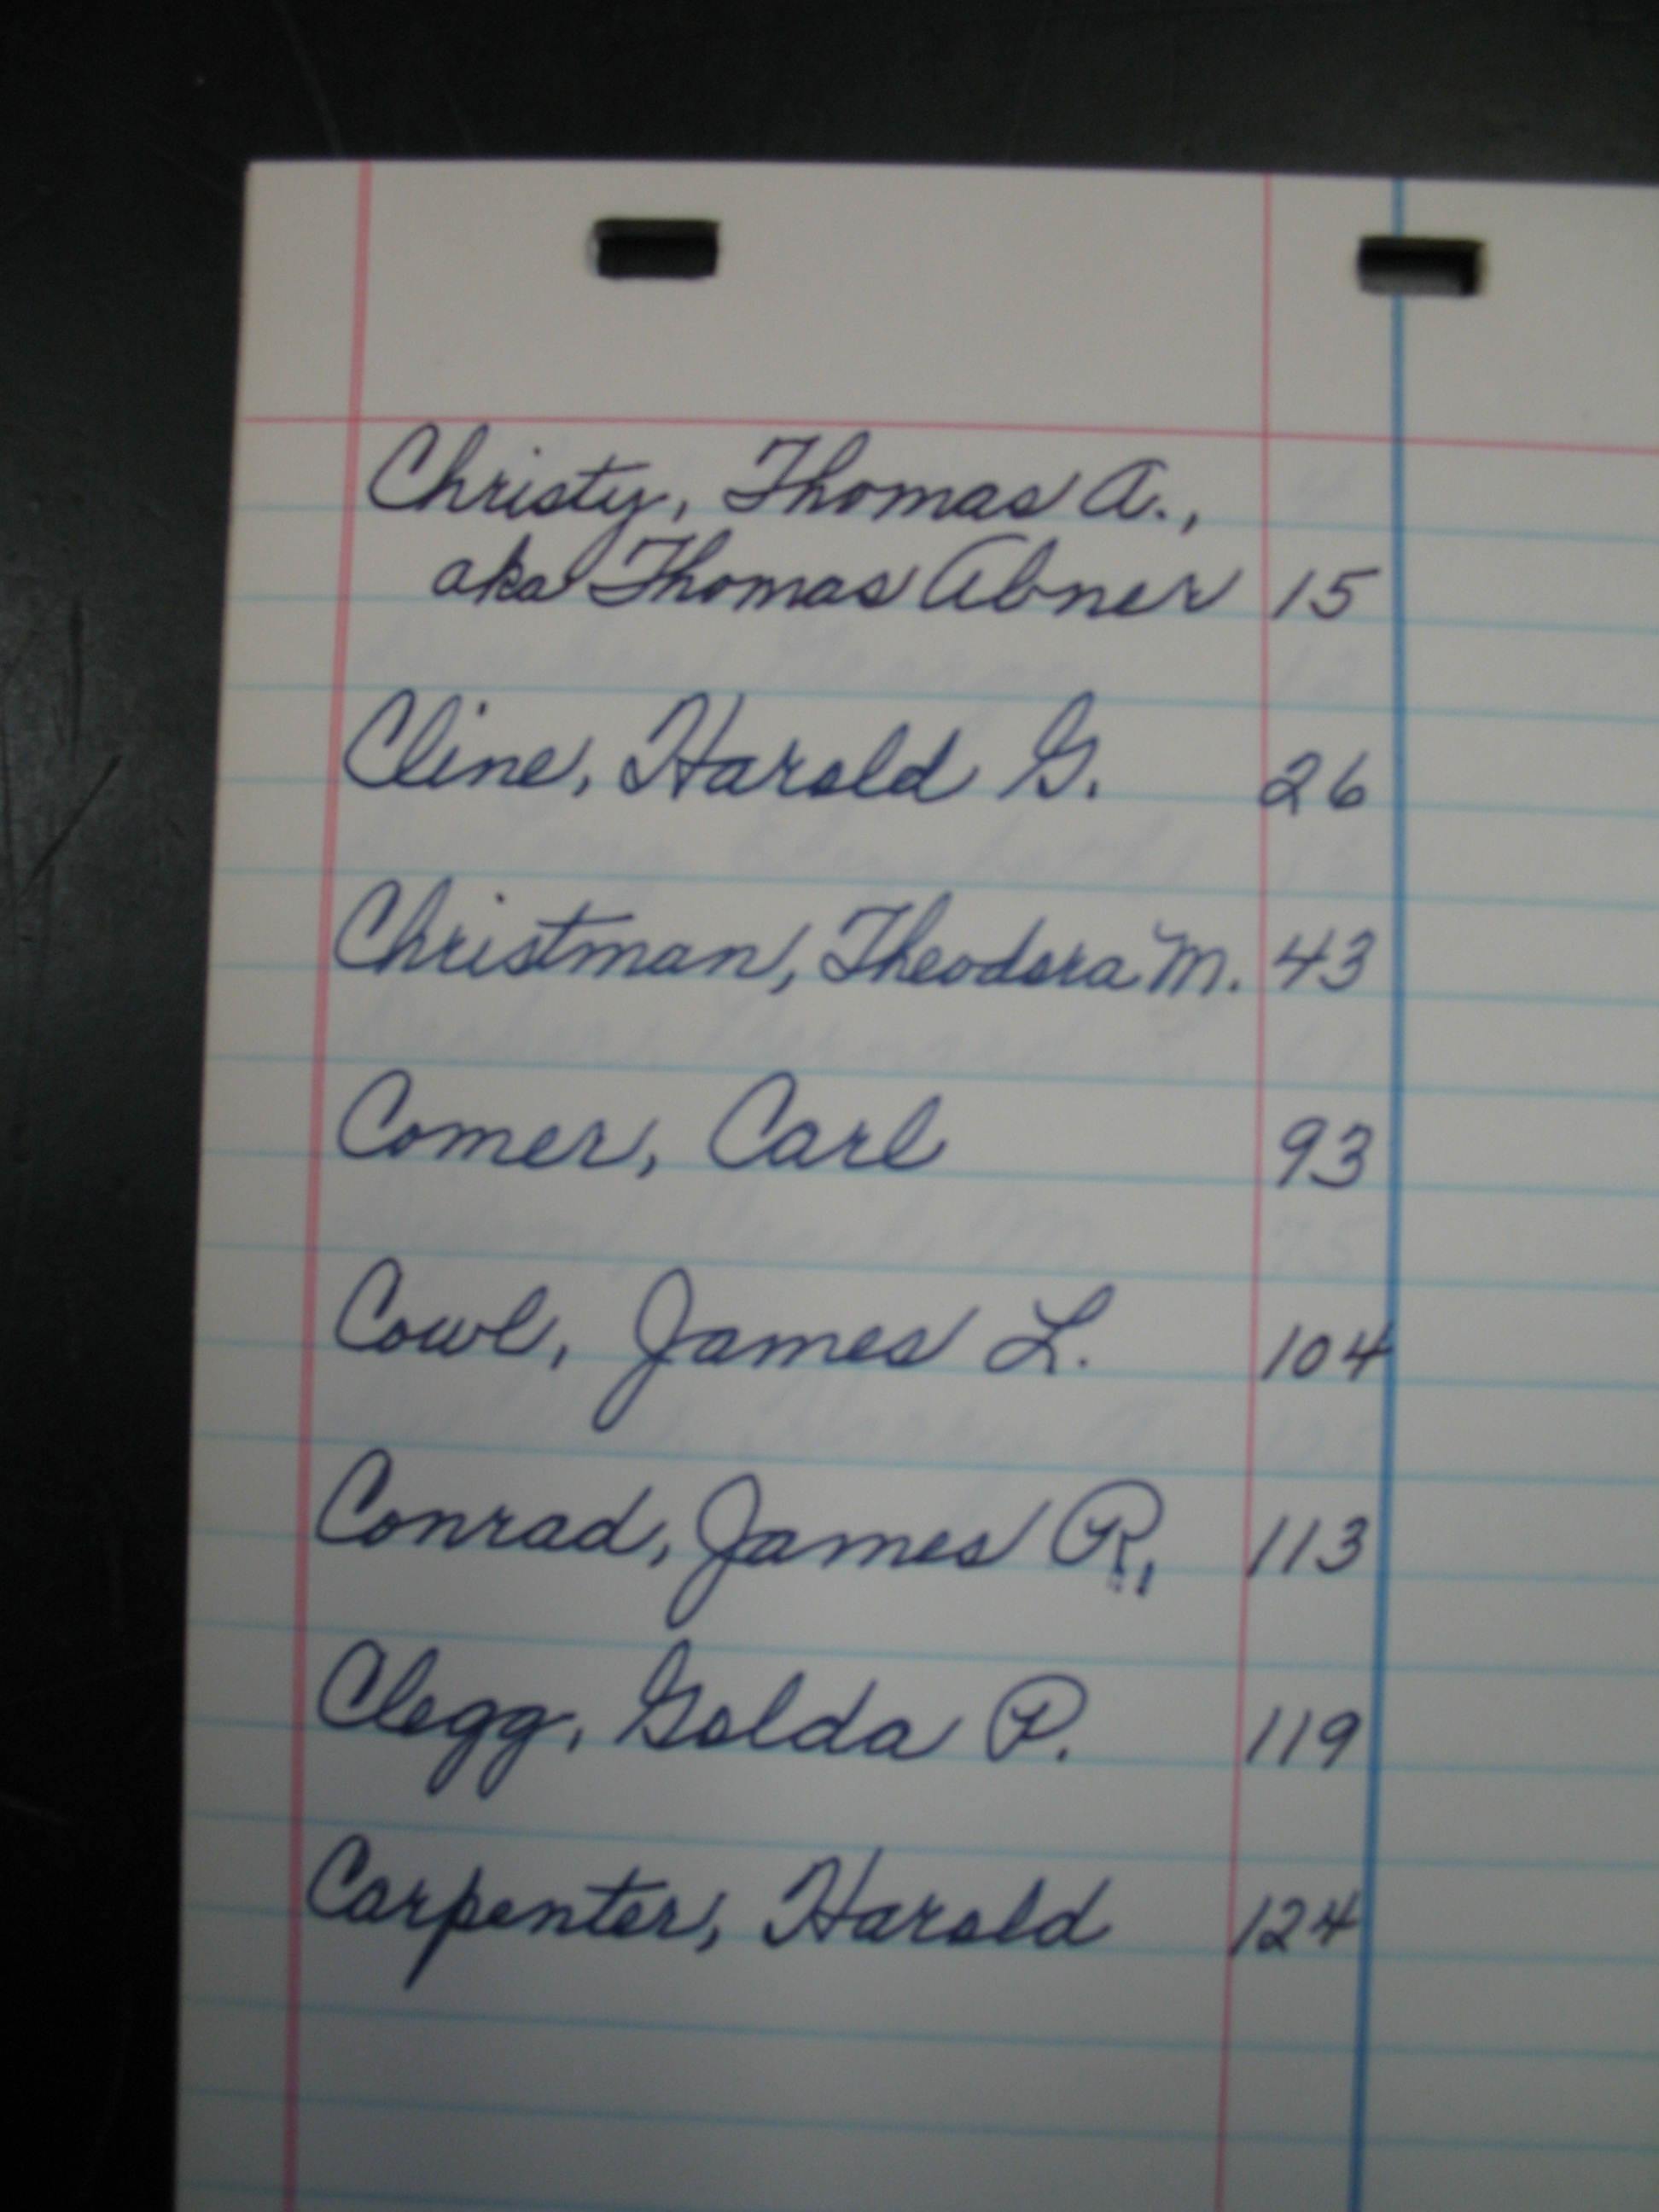 Christy, Thomas A.,
aka Thomas Abner 15
Cline, Harold G. 26
Christman, Theodora M. 43
Comer, Carl 93
Cowl, James L. 104
Conrad, James R. 113
Clegg, Golda P. 119
Carpenter, Harold 124